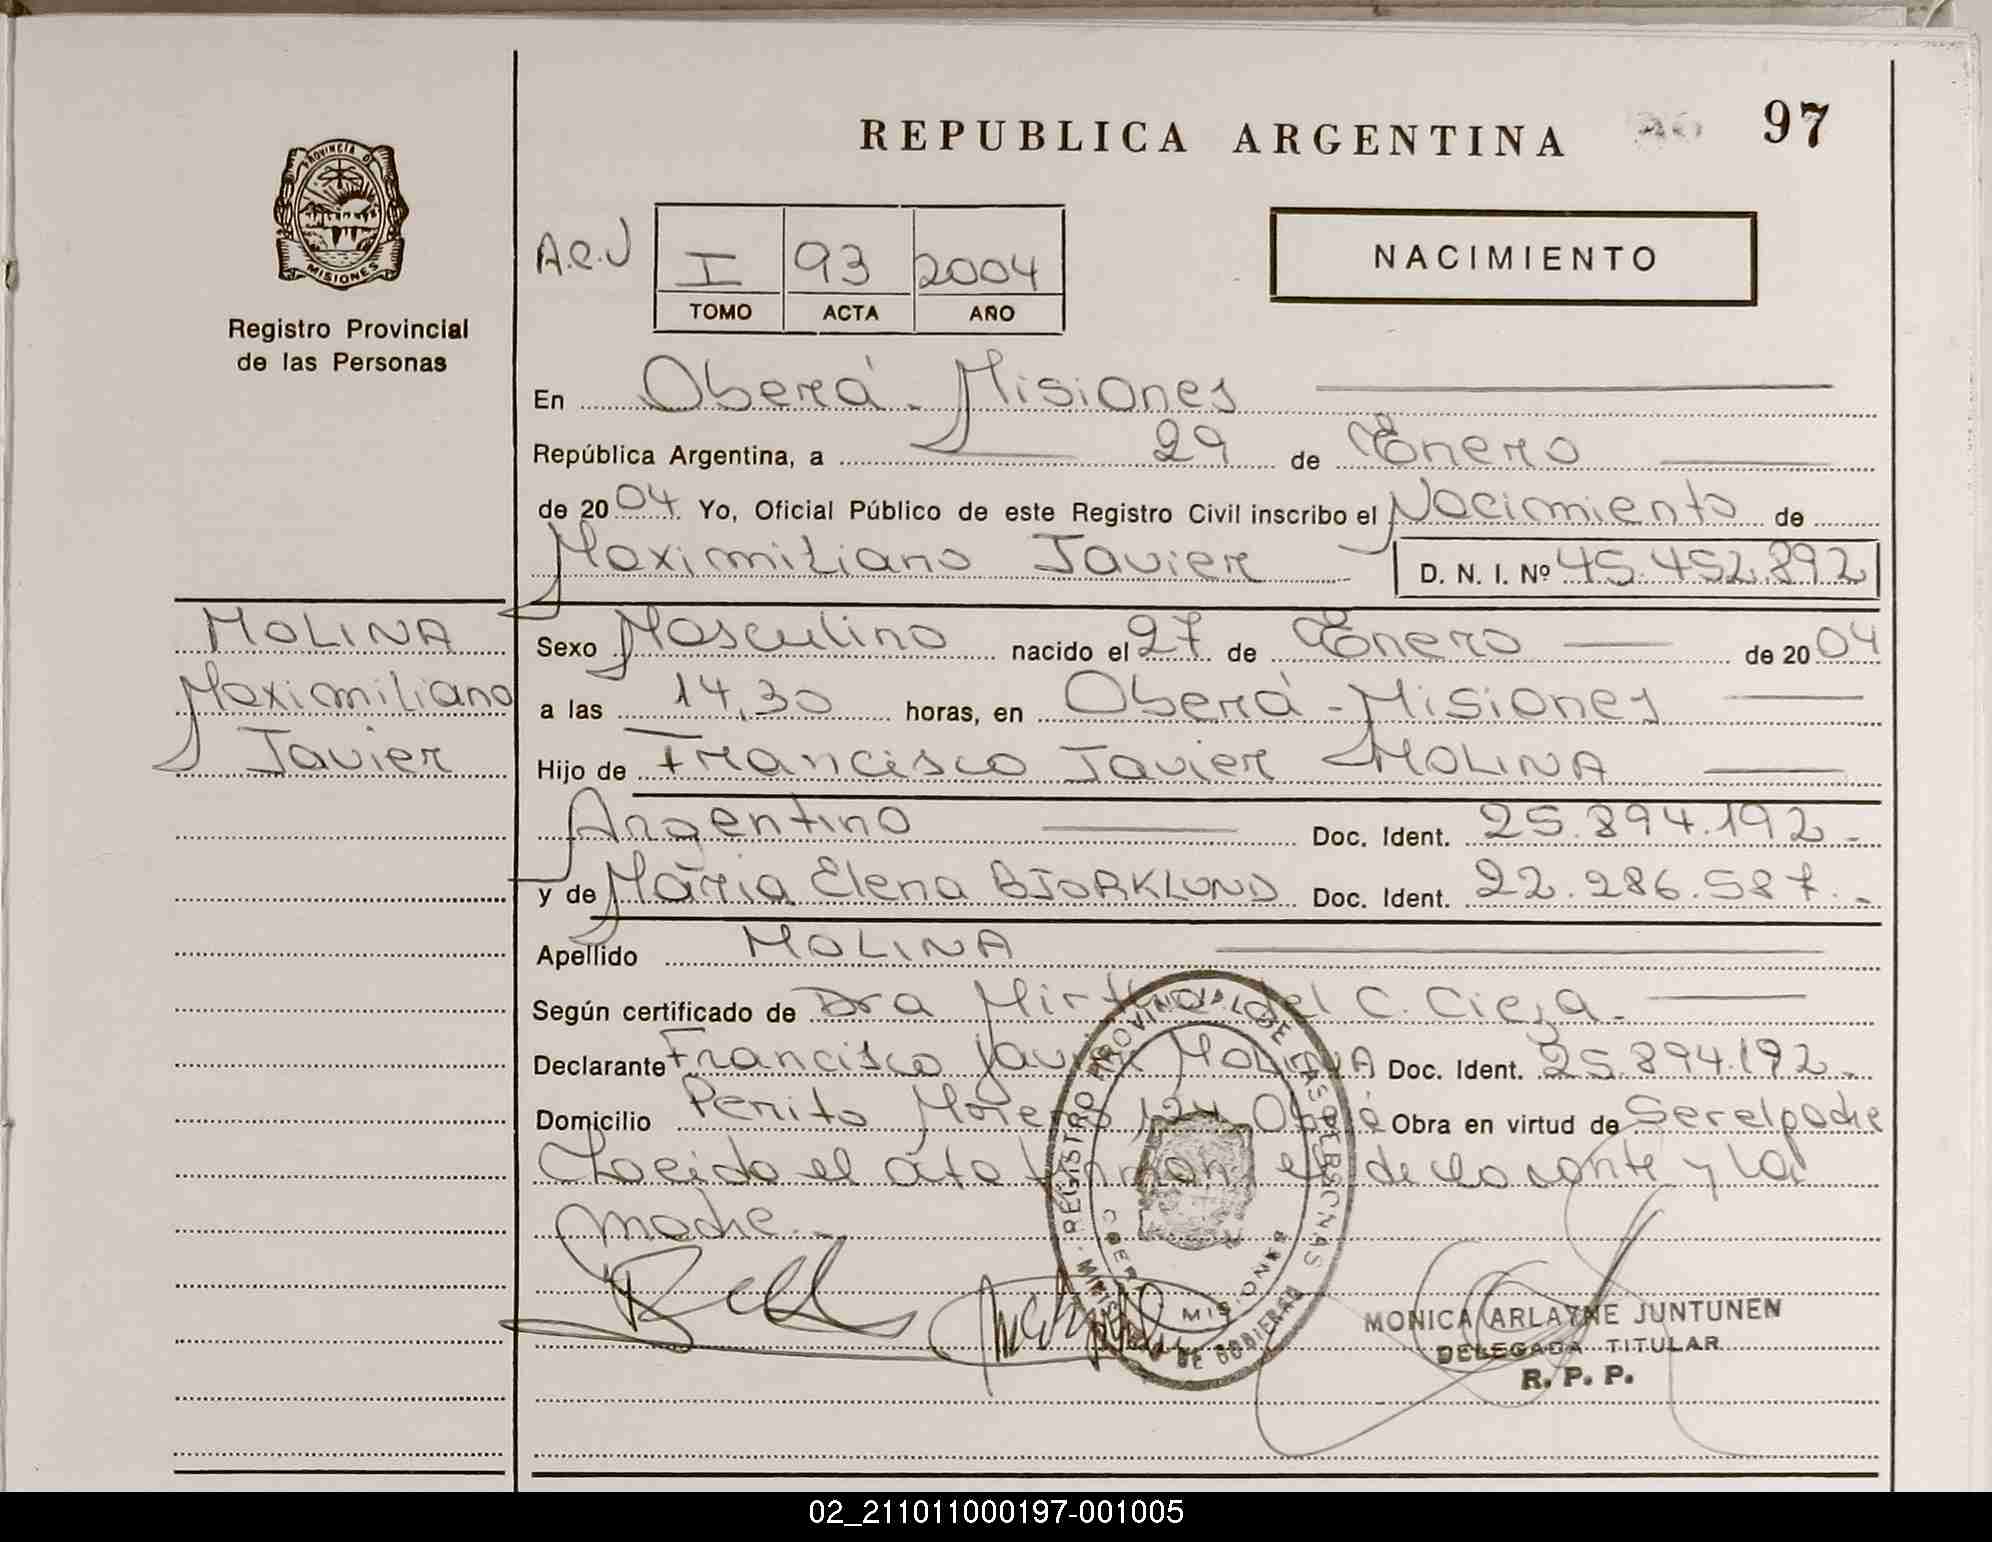 REPUBLICA ARGENTINA 97
PROVINCIA DE
MISIONES
Registro Provincial
de las Personas
NACIMIENTO
I 93 2004
TOMO ACTA AÑO
En Oberá - Misiones
República Argentina, a 29 de Enero
de 2004 Yo, Oficial Público de este Registro Civil inscribo el Nacimiento de
Maximiliano Javier D. N. I. Nº 45.452.892
MOLINA
Maximiliano
Javier
Sexo Masculino nacido el 27 de Enero de 2004
a las 14,30 horas, en Oberá - Misiones
Hijo de Francisco Javier MOLINA
Argentino Doc. Ident. 25.894.192.-
y de María Elena BJORKLUND Doc. Ident. 22.286.587.-
Apellido MOLINA
Según certificado de Dra Mirtha del C. Cieza.
Declarante Francisco Javier MOLINA Doc. Ident. 25.894.192.-
Domicilio Perito Moreno Oberá Obra en virtud de Ser el padre
el acta firman el y la
madre.-
REGISTRO PROVINCIAL DE LAS PERSONAS
MISIONES
DE GOBIERNO
MONICA ARLAYNE JUNTUNEN
DELEGADA TITULAR
R. P. P.
02_211011000197-001005